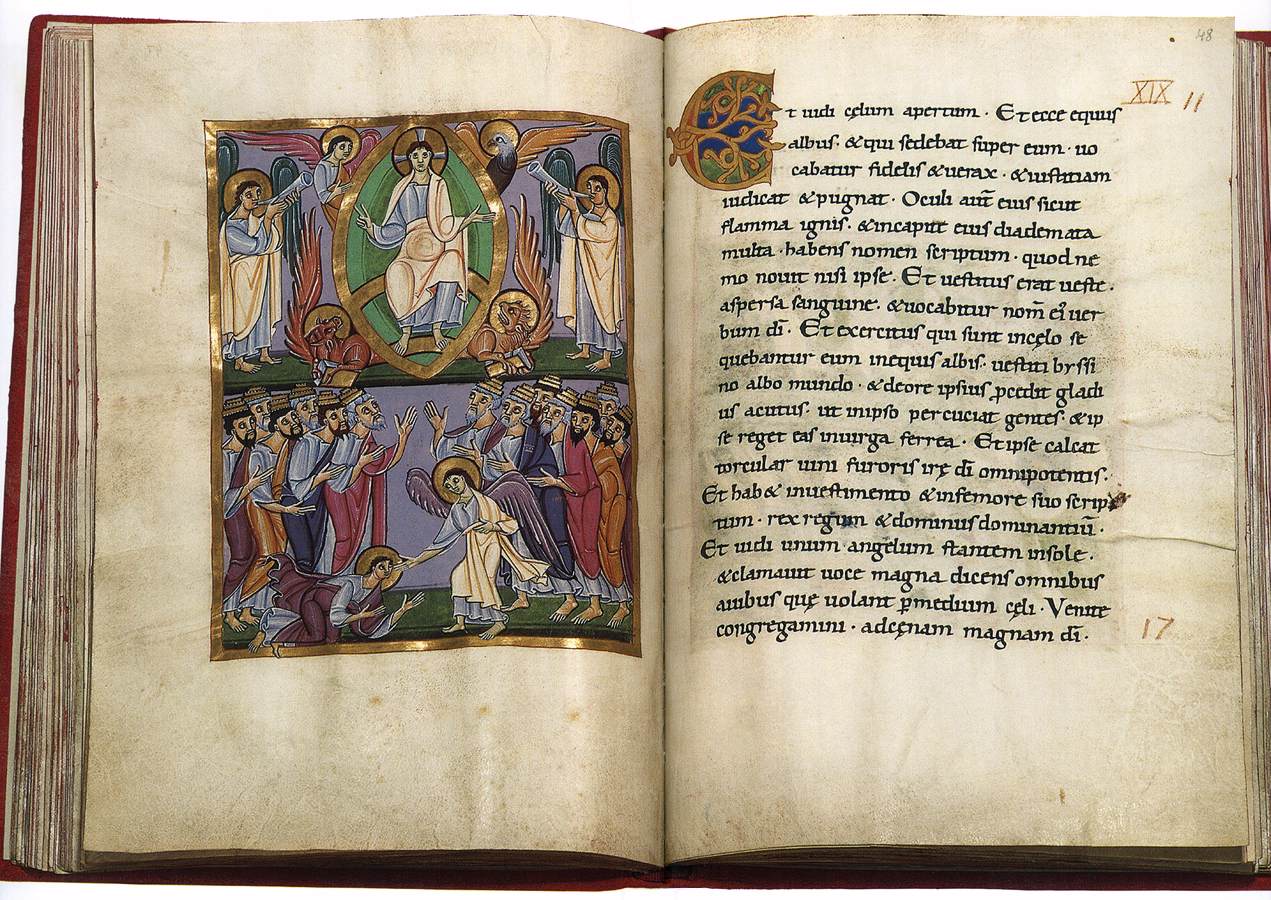 48
XIX 11
Et uidi cęlum apertum · Et ecce equus
albus · & qui sedebat super eum · uo
cabatur fidelis & uerax · & iustitiam
iudicat & pugnat · Oculi aut̄ eius sicut
flamma ignis · & incapite eius diademata
multa · habens nomen scriptum · quod ne
mo nouit nisi ipse · Et uestitus erat ueste ·
aspersa sanguine · & uocabitur nom̄ ei' uer
bum dī · Et exercitus qui sunt incęlo se
quebantur eum inequis albis · uestiti byssi
no albo mundo · & deore ipsius pcedit gladi
us acutus · ut inipso percuciat gentes · & ip
se reget eas inuirga ferrea · Et ipse calcat
torcular uini furoris irę dī omnipotentis ·
Et hab& inuestimento & infemore suo scrip
tum · rex regum & dominus dominantiū ·
Et uidi unum angelum stantem insole ·
& clamauit uoce magna dicens omnibus
auibus quę uolant p̄ medium cęli · Venite
congregamini · adcęnam magnam dī ·
17